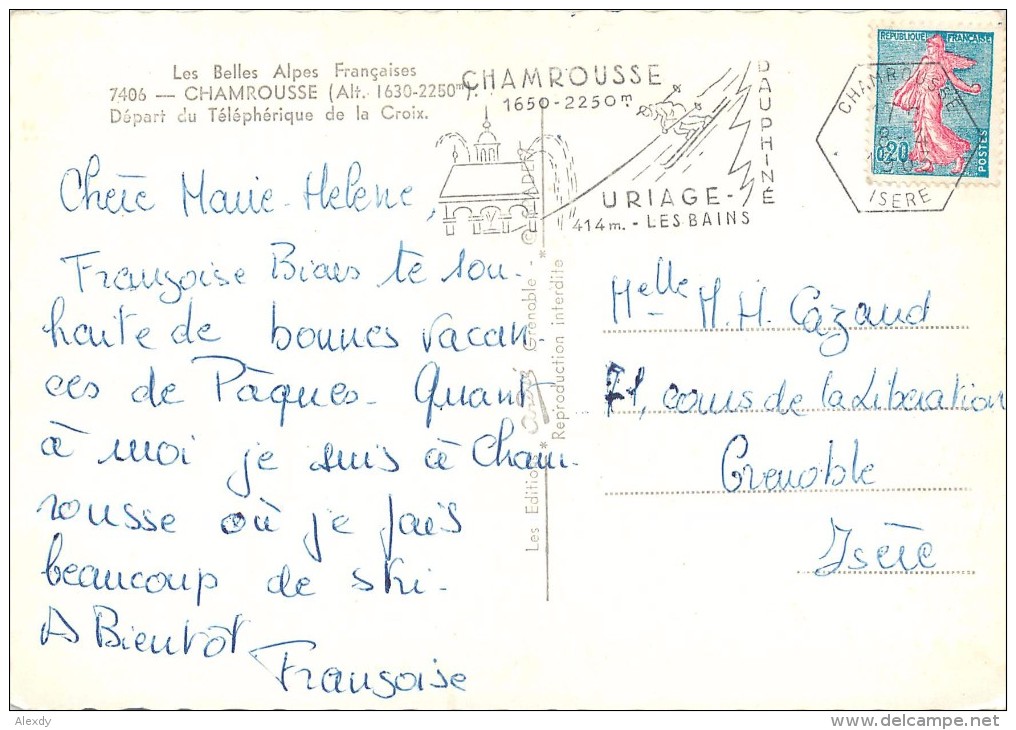 Les Belles Alpes Françaises
7406 — CHAMROUSSE (Alt. 1630-2250m).
Départ du Téléphérique de la Croix.
CHAMROUSSE
1650-2250m
DAUPHINÉ
URIAGE-
414m. - LES BAINS
REPUBLIQUE FRANÇAISE
0,20
POSTES
CHAMROUSSE
ISERE
Chère Marie-Helene,
Françoise Biais te sou-
haite de bonnes vacan-
ces de Pâques. Quant
à moi je suis à Cham-
rousse où je fais
beaucoup de ski.
A Bientôt
Françoise
Les Editions André Grenoble -
Reproduction interdite
Melle M.H. Cazaud
71, cours de la Libération
Grenoble
Isère
Alexdy
delcampe.net